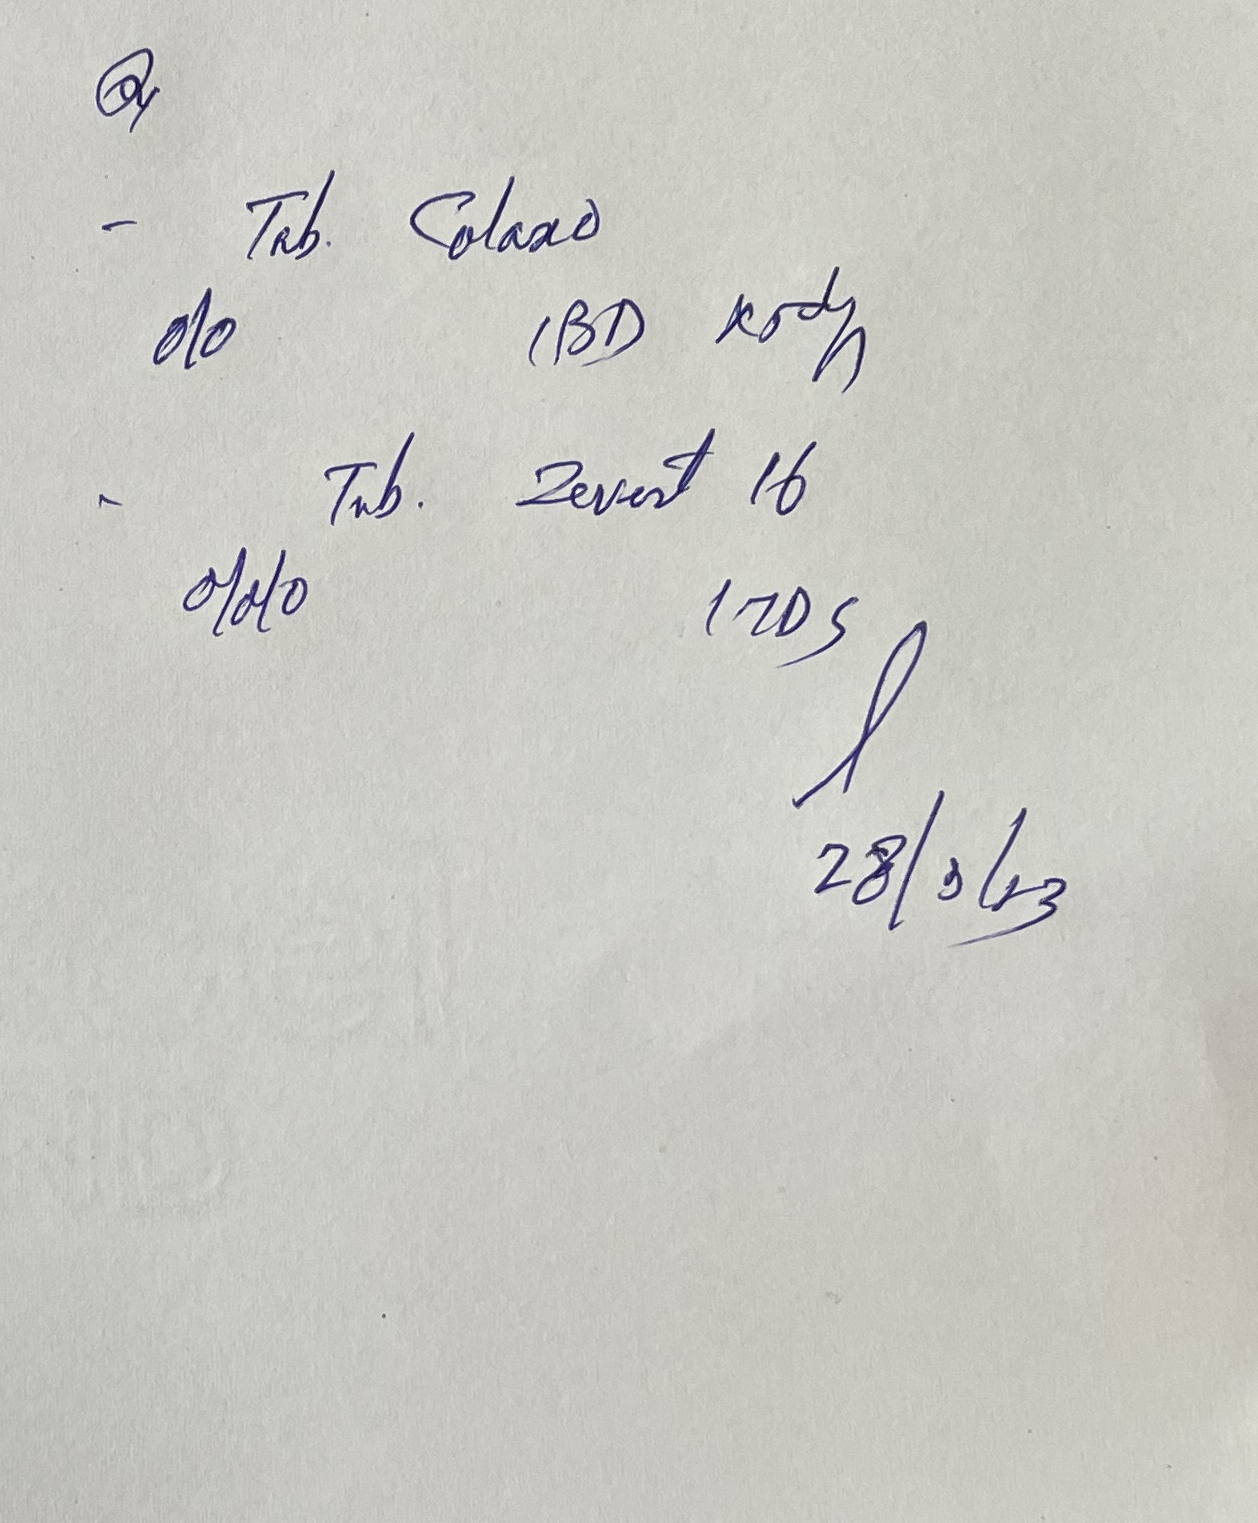 Rx
- Tab. Colaxo
o/o 1BD x 5 dy
- Tab. Zevert 16
o/o/o 1TDS
28/3/23